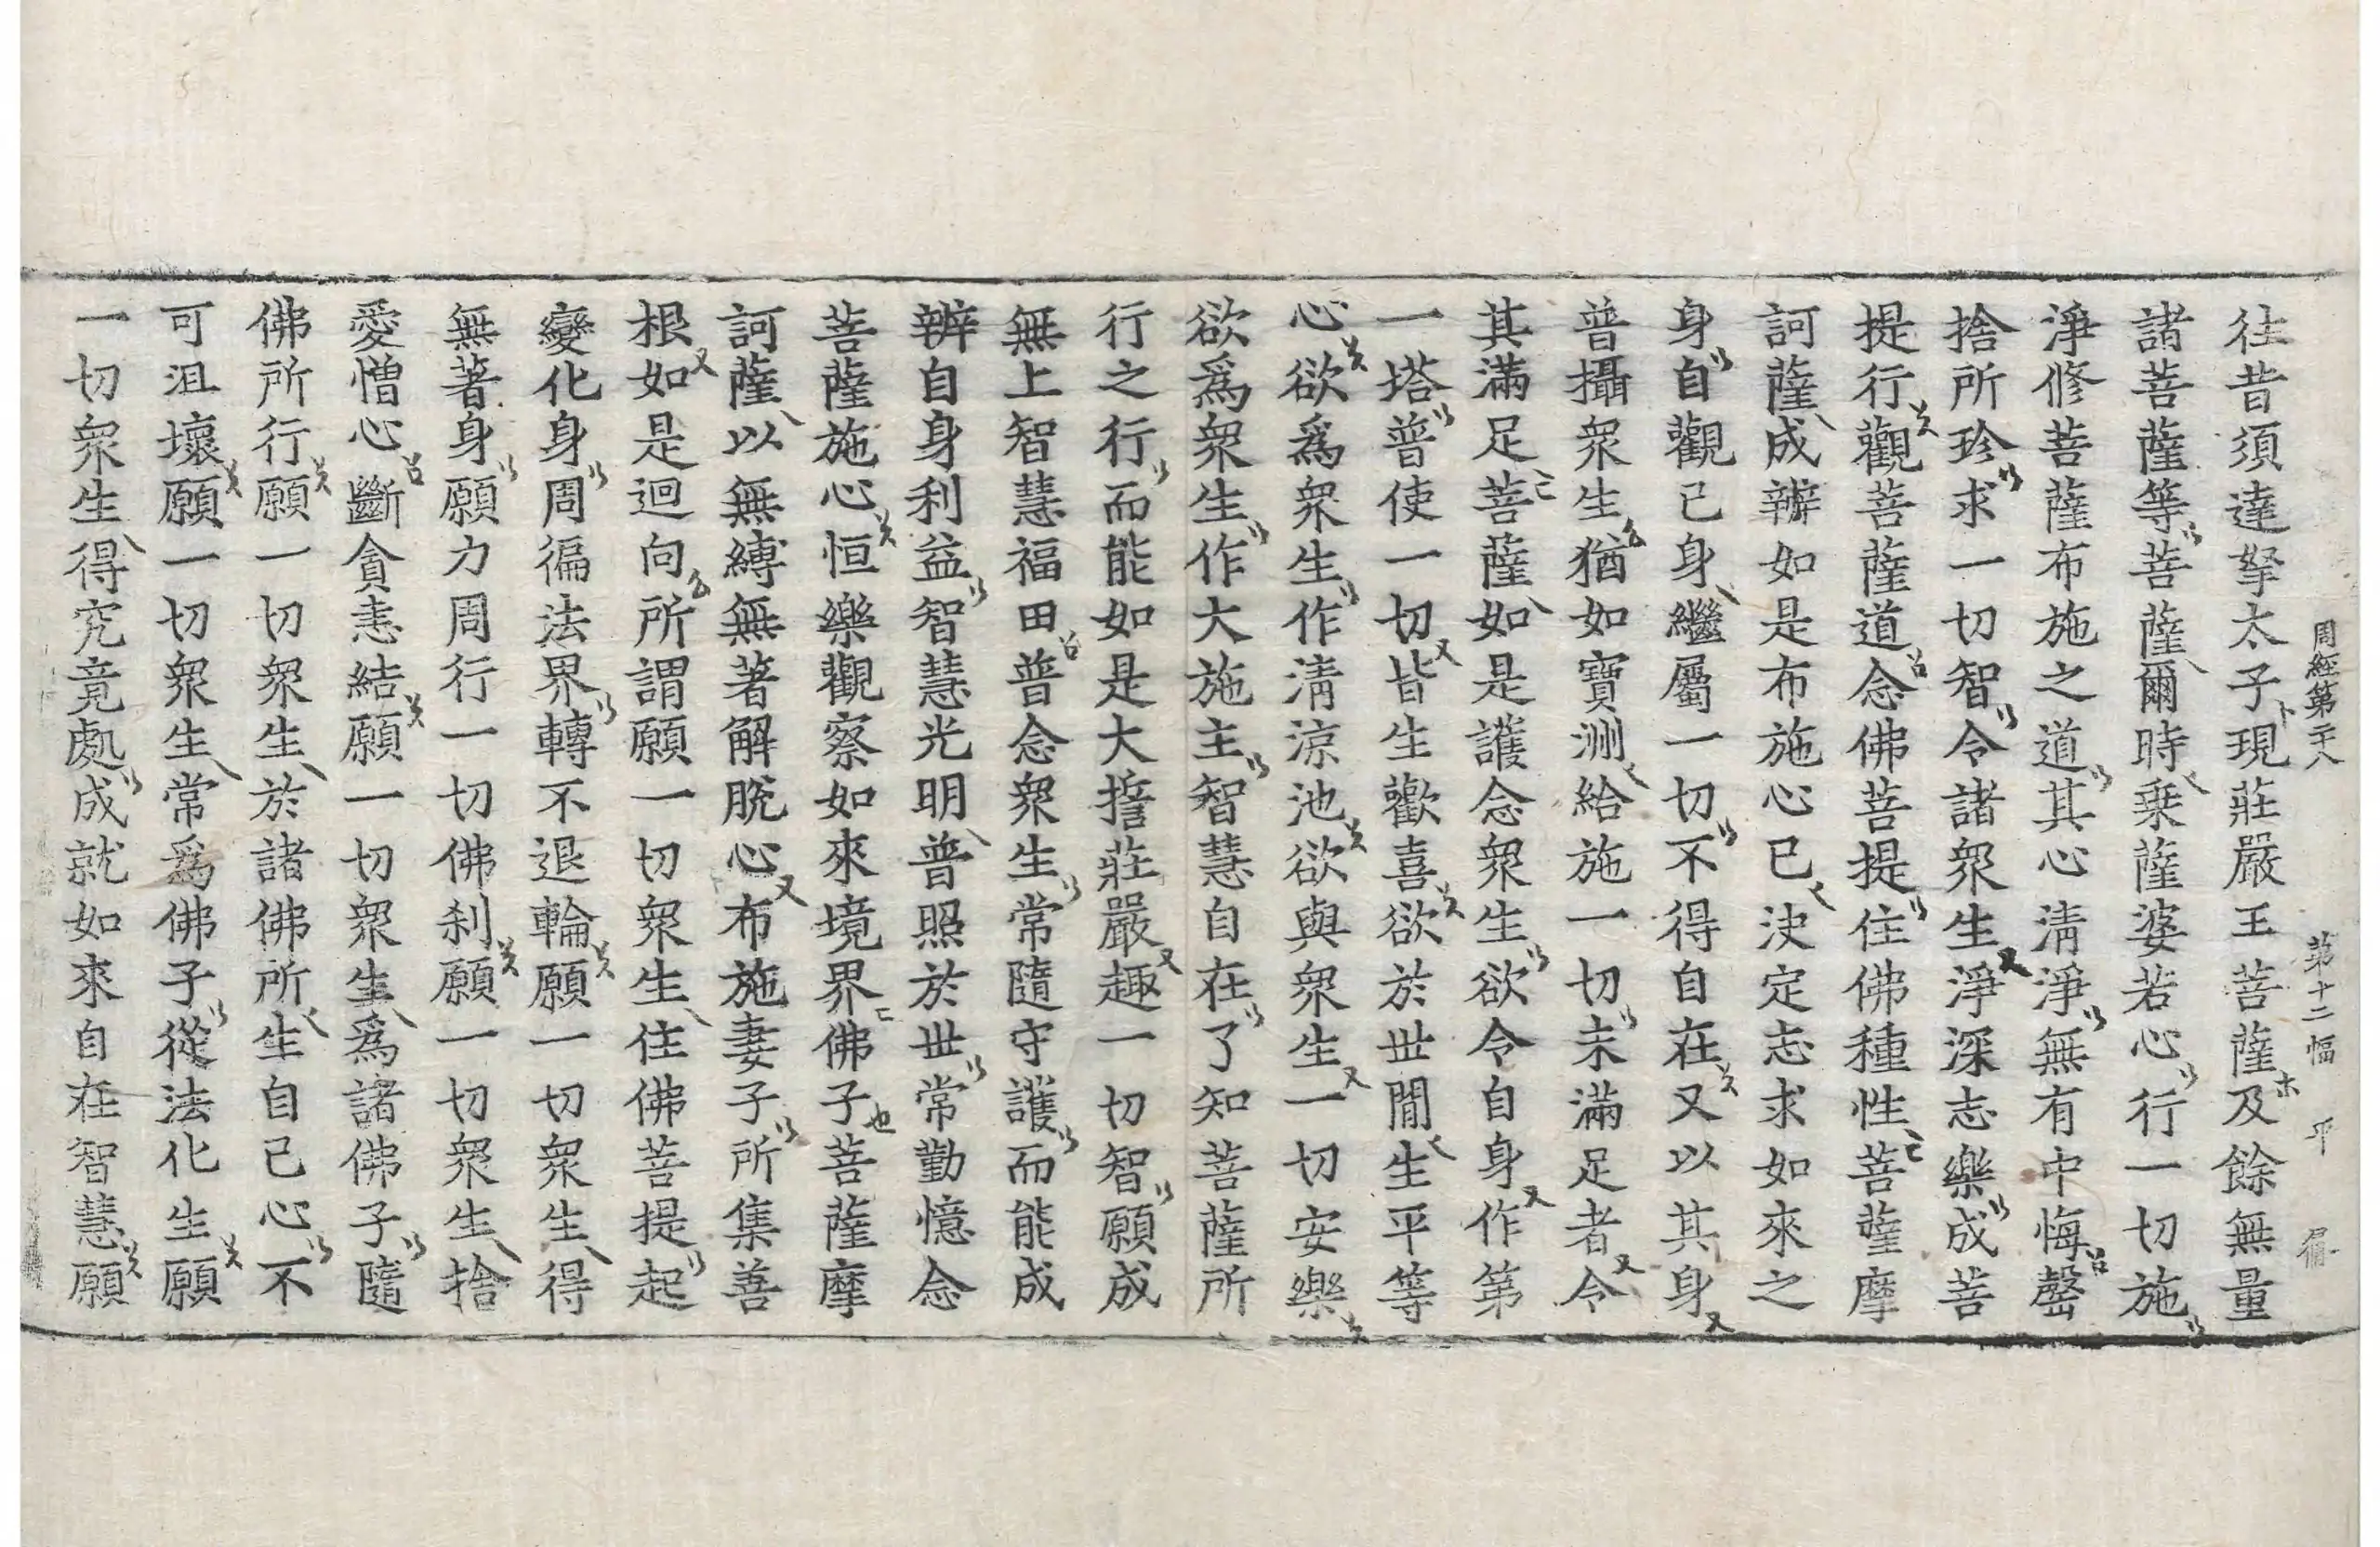 周經第二十八 第十二幅 平
往昔須達拏太子現莊嚴王菩薩及餘無量
諸菩薩等菩薩爾時乗薩婆若心行一切施
淨修菩薩布施之道其心清淨無有中悔罄
捨所珍求一切智令諸衆生淨深志樂成菩
提行觀菩薩道念佛菩提住佛種性菩薩摩
訶薩成辦如是布施心已決定志求如來之
身自觀己身繼屬一切不得自在又以其身
普攝衆生猶如寶洲給施一切未滿足者令
其滿足菩薩如是護念衆生欲令自身作第
一塔普使一切皆生歡喜欲於世間生平等
心欲爲衆生作清涼池欲與衆生一切安樂
欲爲衆生作大施主智慧自在了知菩薩所
行之行而能如是大誓莊嚴趣一切智願成
無上智慧福田普念衆生常隨守護而能成
辦自身利益智慧光明普照於世常勤憶念
菩薩施心恒樂觀察如來境界佛子菩薩摩
訶薩以無縛無著解脫心布施妻子所集善
根如是迴向所謂願一切衆生住佛菩提起
變化身周徧法界轉不退輪願一切衆生得
無著身願力周行一切佛刹願一切衆生捨
愛憎心斷貪恚結願一切衆生爲諸佛子隨
佛所行願一切衆生於諸佛所生自己心不
可沮壞願一切衆生常爲佛子從法化生願
一切衆生得究竟處成就如來自在智慧願